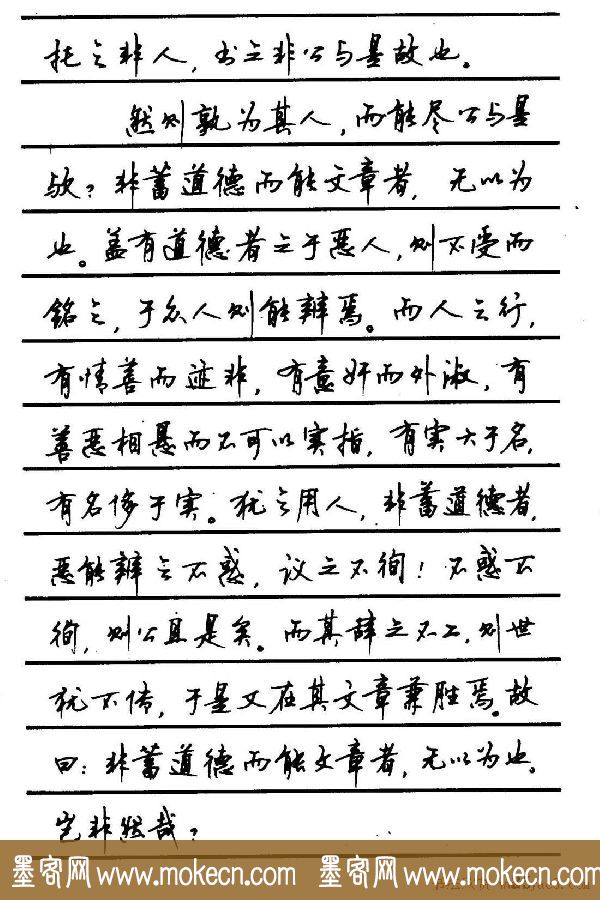 托之非人，书之非公与是故也。
然则孰为其人，而能尽公与是
欤？非蓄道德而能文章者，无以为
也。盖有道德者之于恶人，则不受而
铭之，于众人则能辨焉。而人之行，
有情善而迹非，有意奸而外淑，有
善恶相悬而不可以实指，有实大于名，
有名侈于实。犹之用人，非蓄道德者，
恶能辨之不惑，议之不徇！不惑不
徇，则公且是矣。而其辞之不工，则世
犹不传，于是又在其文章兼胜焉。故
曰：非蓄道德而能文章者，无以为也。
岂非然哉？
墨客网 www.mokecn.com 墨客网 www.mokecn.com